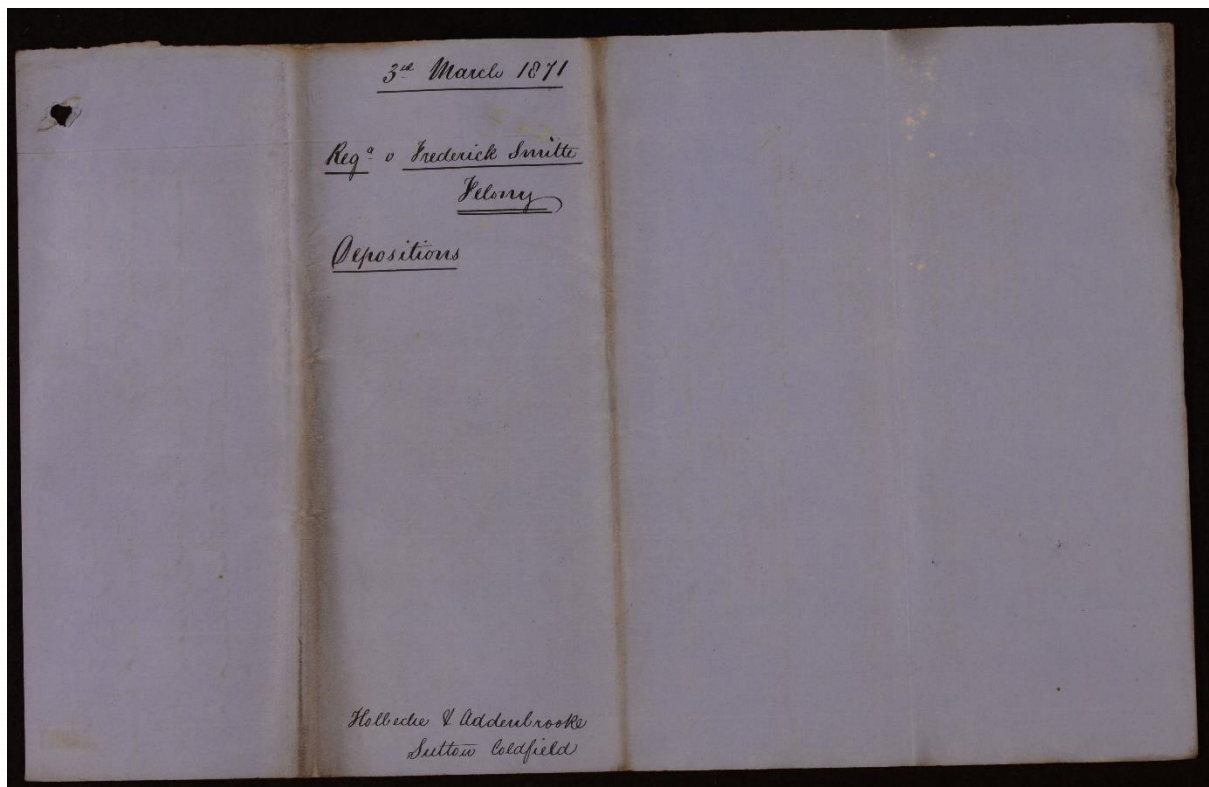 3rd March 1871
Rega v Frederick Smith
Felony
Depositions
Holbeche & Addenbrooke
Sutton Coldfield